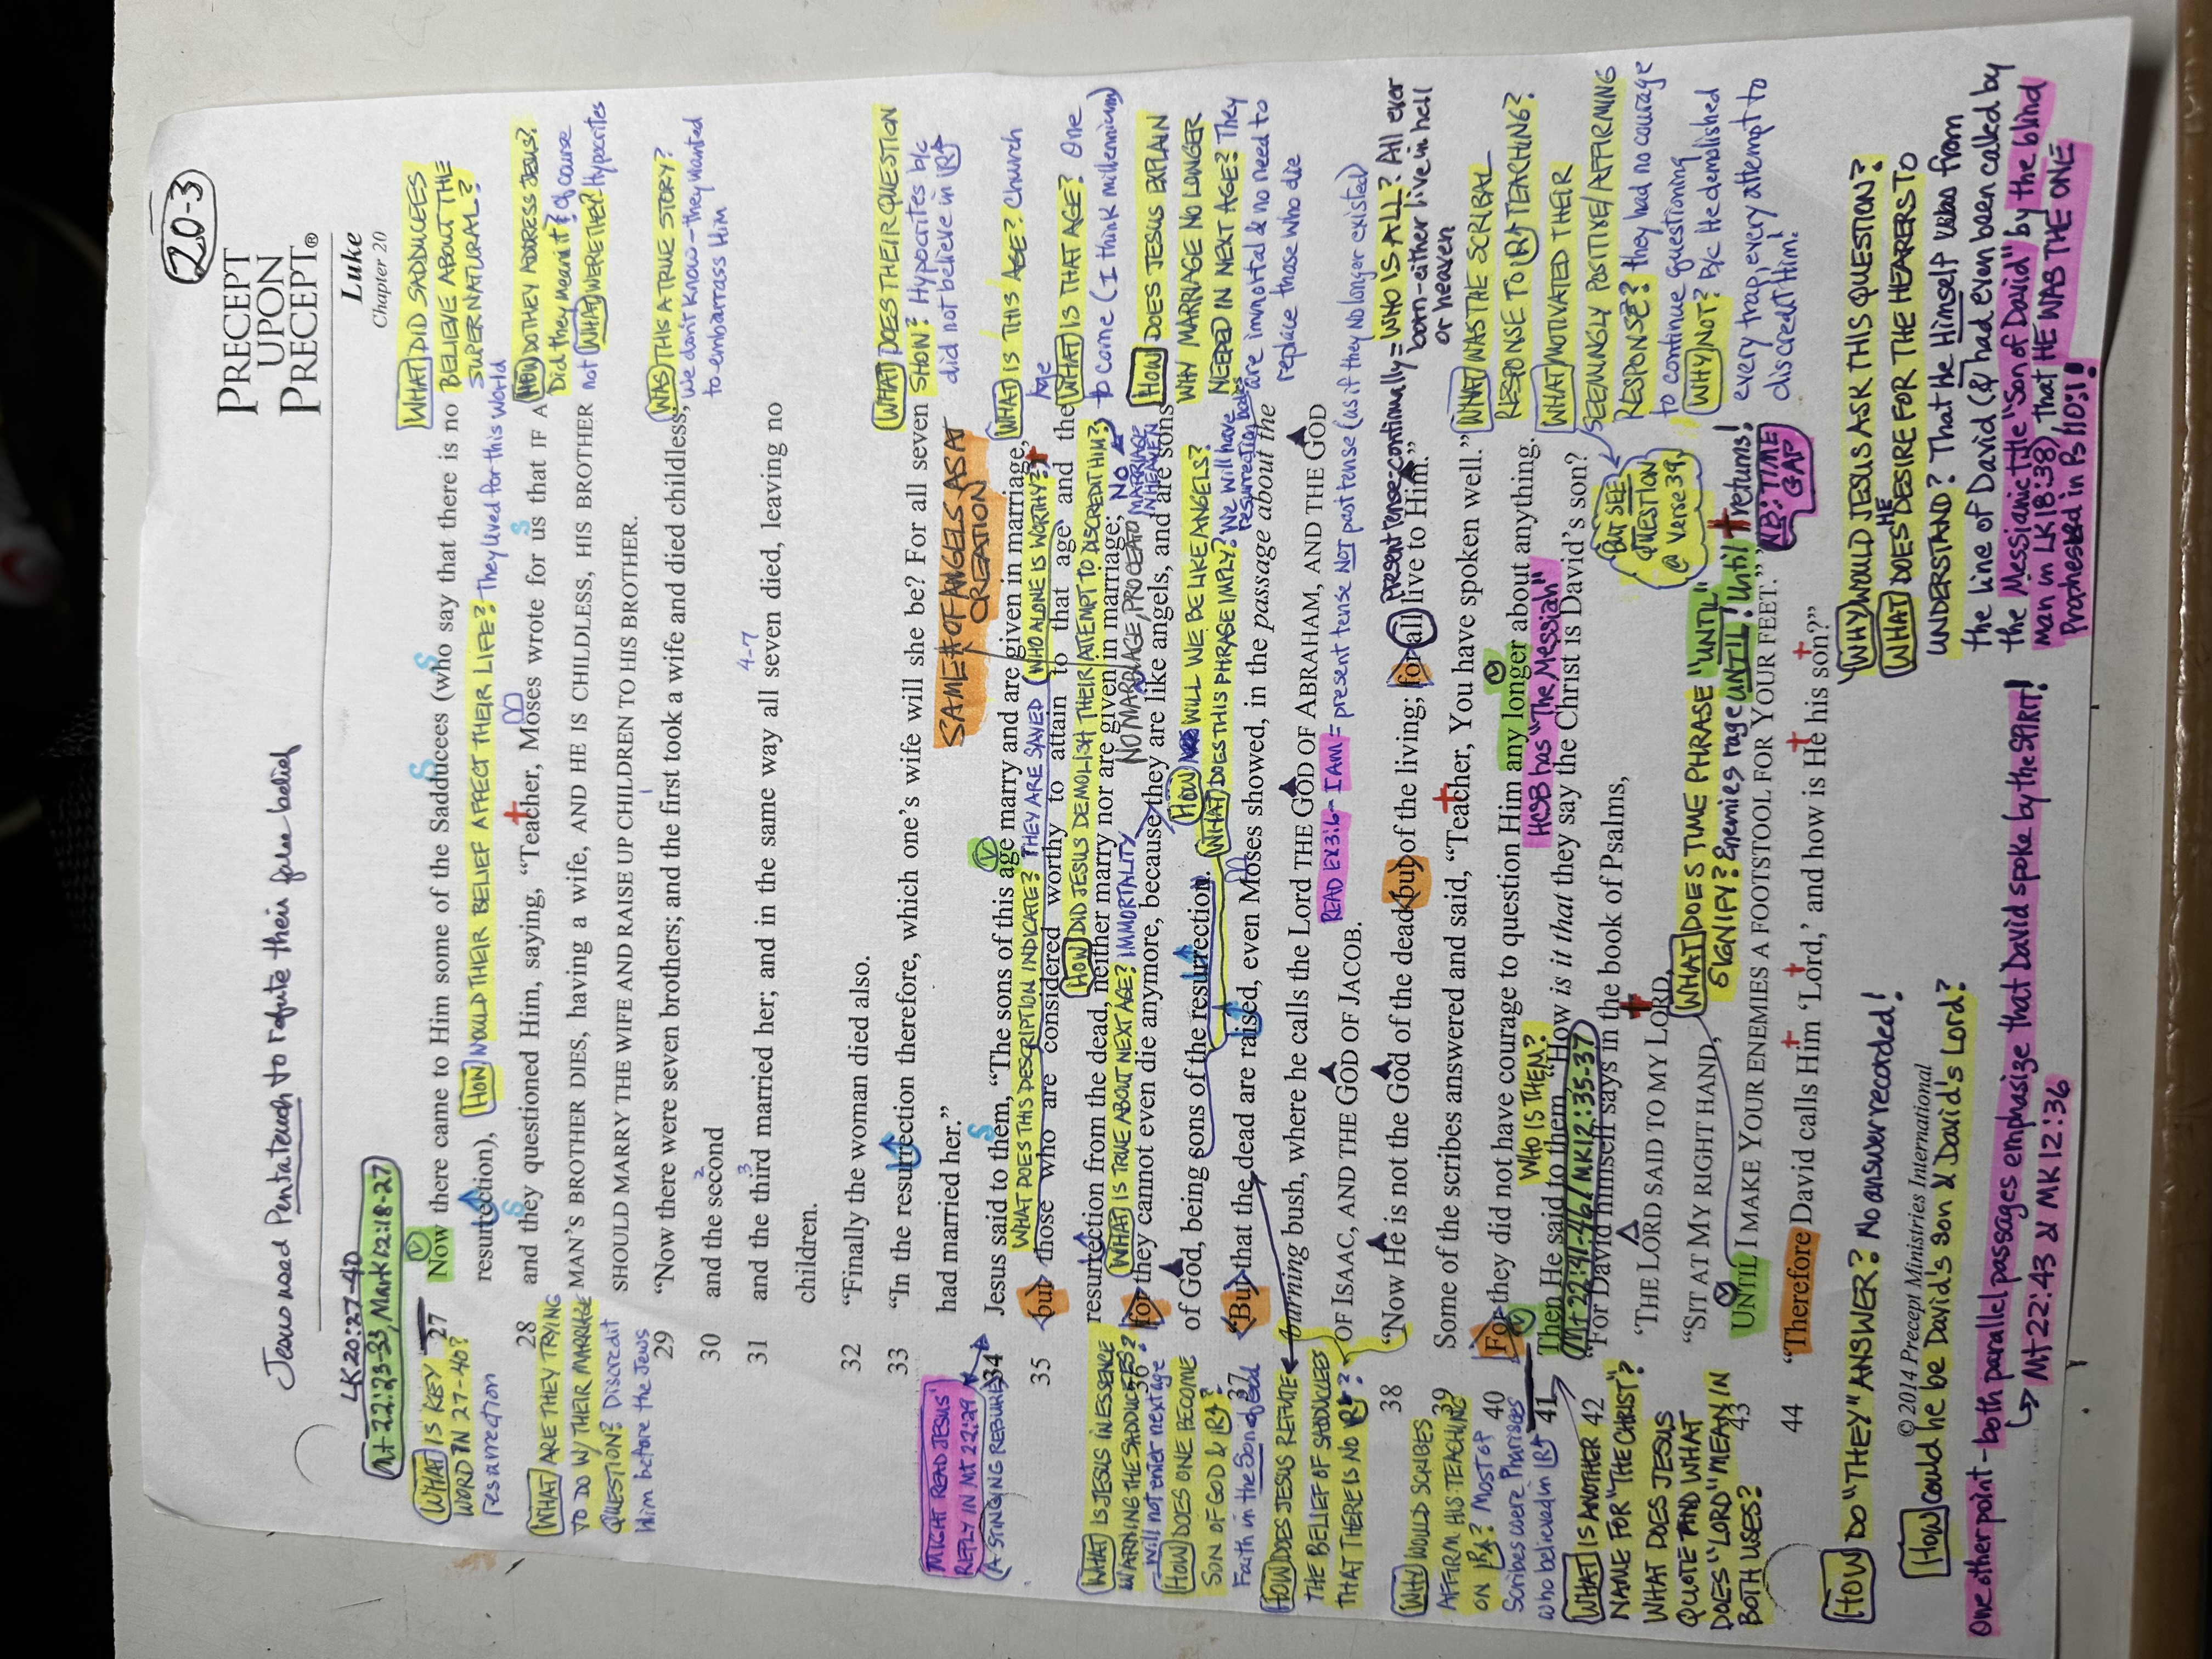 20-3
PRECEPT
UPON
PRECEPT®
Luke
Chapter 20
Jesus used Pentateuch to refute their false belief
LK20:27-40
Mt 22:23-33, Mark 12:18-27
WHAT IS KEY
WORD IN 27-40?
resurrection
WHAT DID SADDUCEES
BELIEVE ABOUT THE
SUPERNATURAL?
27 Now there came to Him some of the Sadducees (who say that there is no
resurrection),
HOW WOULD THEIR BELIEF AFFECT THEIR LIFE? They lived for this world
28 and they questioned Him, saying, “Teacher, Moses wrote for us that IF A
MAN’S BROTHER DIES, having a wife, AND HE IS CHILDLESS, HIS BROTHER
SHOULD MARRY THE WIFE AND RAISE UP CHILDREN TO HIS BROTHER.
HOW DO THEY ADDRESS JESUS?
Did they mean it? Of course
not WHAT WERE THEY? Hypocrites
WHAT ARE THEY TRYING
TO DO W/ THEIR MARRIAGE
QUESTION? Discredit
Him before the Jews
29 “Now there were seven brothers; and the first took a wife and died childless;
WAS THIS A TRUE STORY?
We don't know - they wanted
to embarrass Him
30 and the second
31 and the third married her; and in the same way all seven died, leaving no
children.
1
2
3
4-7
32 “Finally the woman died also.
33 “In the resurrection therefore, which one’s wife will she be? For all seven
had married her.”
WHAT DOES THEIR QUESTION
SHOW? Hypocrites b/c
did not believe in
SAME # OF ANGELS AS AT
CREATION
MIGHT READ JESUS'
REPLY IN MT 22:29
(A STINGING REBUKE)
34 Jesus said to them, “The sons of this age marry and are given in marriage,
WHAT IS THIS AGE? Church
Age
WHAT DOES THIS DESCRIPTION INDICATE? THEY ARE SAVED (WHO ALONE IS WORTHY?)
35 but those who are considered worthy to attain to that age and the
resurrection from the dead, neither marry nor are given in marriage;
WHAT IS THAT AGE? One
to come (I think millennium)
HOW DID JESUS DEMOLISH THEIR ATTEMPT TO DISCREDIT HIM?
NO MARRIAGE
IN HEAVEN
NO MARRIAGE, PROCREATO
WHAT IS TRUE ABOUT NEXT AGE? IMMORTALITY
36 for they cannot even die anymore, because they are like angels, and are sons
of God, being sons of the resurrection.
WHAT IS JESUS IN ESSENCE
WARNING THE SADDUCEES?
- will not enter next age
HOW DOES ONE BECOME
SON OF GOD &
Faith in the Son of God
HOW DOES JESUS EXPLAIN
WHY MARRIAGE NO LONGER
NEEDED IN NEXT AGE? They
are immortal & no need to
replace those who die
HOW WILL WE BE LIKE ANGELS?
WHAT DOES THIS PHRASE IMPLY? We will have
resurrection bodies
37 “But that the dead are raised, even Moses showed, in the passage about the
burning bush, where he calls the Lord THE GOD OF ABRAHAM, AND THE GOD
OF ISAAC, AND THE GOD OF JACOB.
HOW DOES JESUS REFUTE
THE BELIEF OF SADDUCEES
THAT THERE IS NO
READ EX3:6 - I AM = present tense NOT past tense (as if they no longer existed)
38 “Now He is not the God of the dead but of the living; for all live to Him.”
present tense = continually = WHO IS ALL? All ever
born - either live in hell
or heaven
39 Some of the scribes answered and said, “Teacher, You have spoken well.”
WHAT WAS THE SCRIBAL
RESPONSE TO TEACHING?
WHY WOULD SCRIBES
AFFIRM HIS TEACHING
ON Most of
Scribes were Pharisees
who believed in
40 For they did not have courage to question Him any longer about anything.
WHAT MOTIVATED THEIR
SEEMINGLY POSITIVE/AFFIRMING
RESPONSE? They had no courage
to continue questioning
WHY NOT? B/c He demolished
every trap, every attempt to
discredit Him!
BUT SEE
QUESTION
@ verse 39
WHO IS THEM?
HCSB has "The Messiah"
41 Then He said to them, “How is it that they say the Christ is David’s son?
Mt 22:41-46/MK12:35-37
42 “For David himself says in the book of Psalms,
‘THE LORD SAID TO MY LORD,
“SIT AT MY RIGHT HAND,
WHAT IS ANOTHER
NAME FOR "THE CHRIST"?
WHAT DOES JESUS
QUOTE AND WHAT
DOES "LORD" MEAN IN
BOTH USES?
WHAT DOES TIME PHRASE "UNTIL"
SIGNIFY? Enemies rage UNTIL! Until returns!
NB: TIME
GAP
43 UNTIL I MAKE YOUR ENEMIES A FOOTSTOOL FOR YOUR FEET.”’
44 “Therefore David calls Him ‘Lord,’ and how is He his son?”
HOW DO "THEY" ANSWER? No answer recorded!
© 2014 Precept Ministries International
HOW Could he be David's son & David's Lord?
WHY WOULD JESUS ASK THIS QUESTION?
WHAT DOES HE DESIRE FOR THE HEARERS TO
UNDERSTAND? That He Himself was from
the line of David (& had even been called by
the Messianic title "Son of David" by the blind
man in LK 18:38), that HE WAS THE ONE
Prophesied in Ps 110:1!
One other point - both parallel passages emphasize that David spoke by the SPIRIT!
Mt 22:43 & MK 12:36